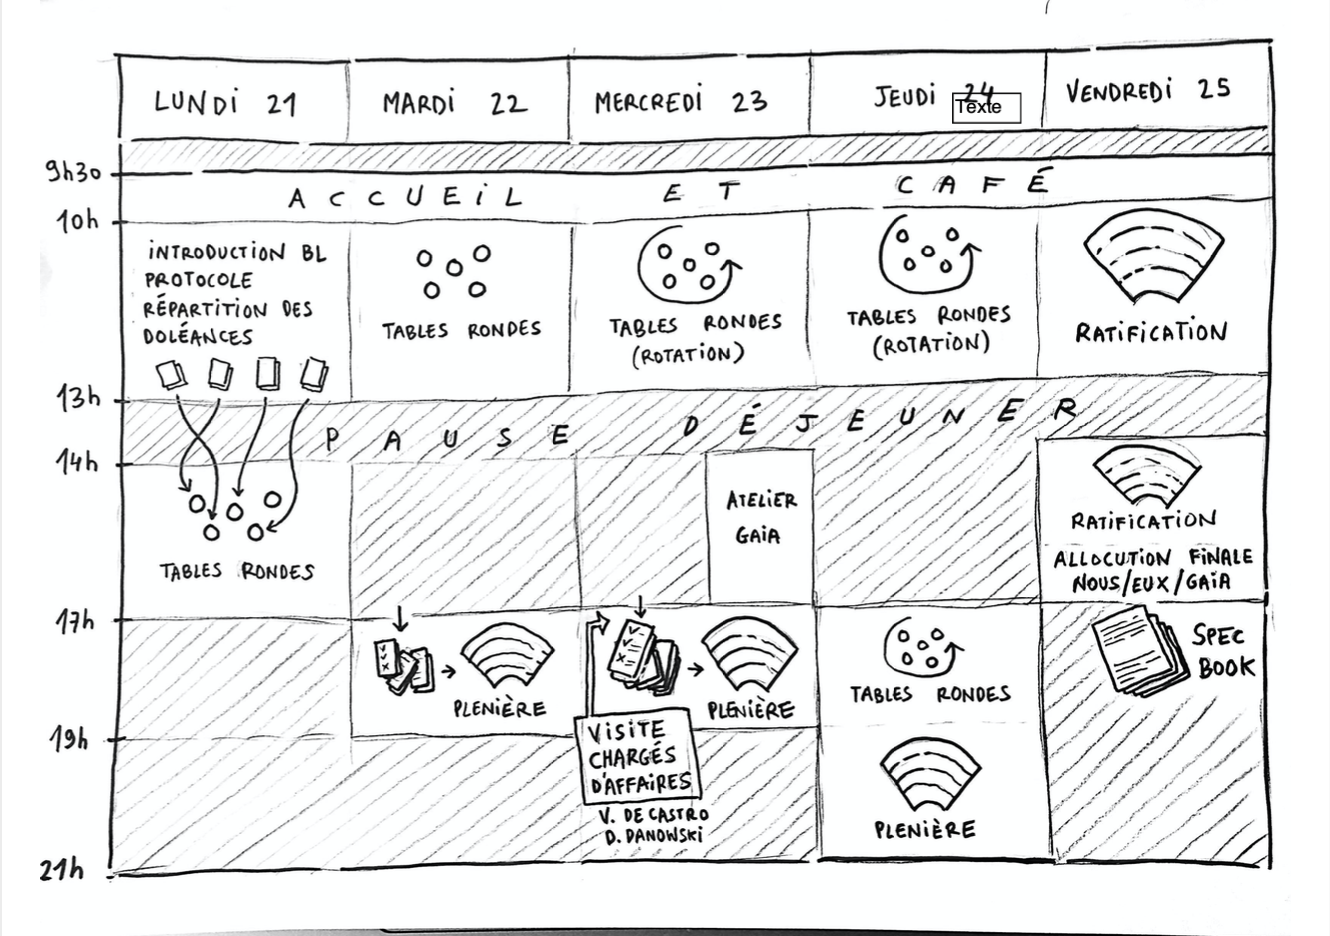 LUNDI 21
MARDI 22
MERCREDI 23
JEUDI 24
Texte
VENDREDI 25
9h30
ACCUEIL ET CAFÉ
10h
INTRODUCTION BL
PROTOCOLE
RÉPARTITION DES
DOLÉANCES
TABLES RONDES
TABLES RONDES
(ROTATION)
TABLES RONDES
(ROTATION)
RATIFICATION
13h
PAUSE DÉJEUNER
14h
TABLES RONDES
ATELIER
GAIA
RATIFICATION
ALLOCUTION FINALE
NOUS/EUX/GAIA
17h
PLENIÈRE
PLENIÈRE
TABLES RONDES
SPEC
BOOK
19h
VISITE
CHARGÉS
D'AFFAIRES
V. DE CASTRO
D. DANOWSKI
PLENIÈRE
21h